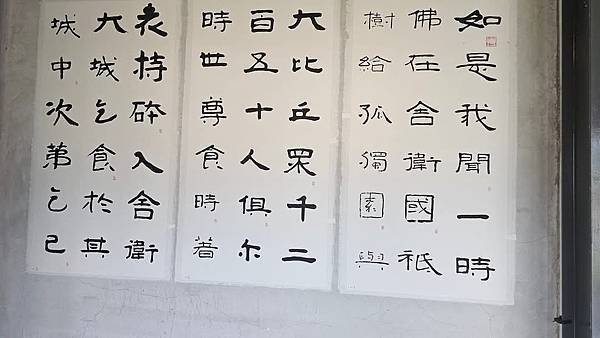 如是我聞一時
佛在舍衛國祇
樹給孤獨園與
大比丘眾千二
百五十人俱尔
時世尊食時著
衣持砵入舍衛
大城乞食於其
城中次第乞已